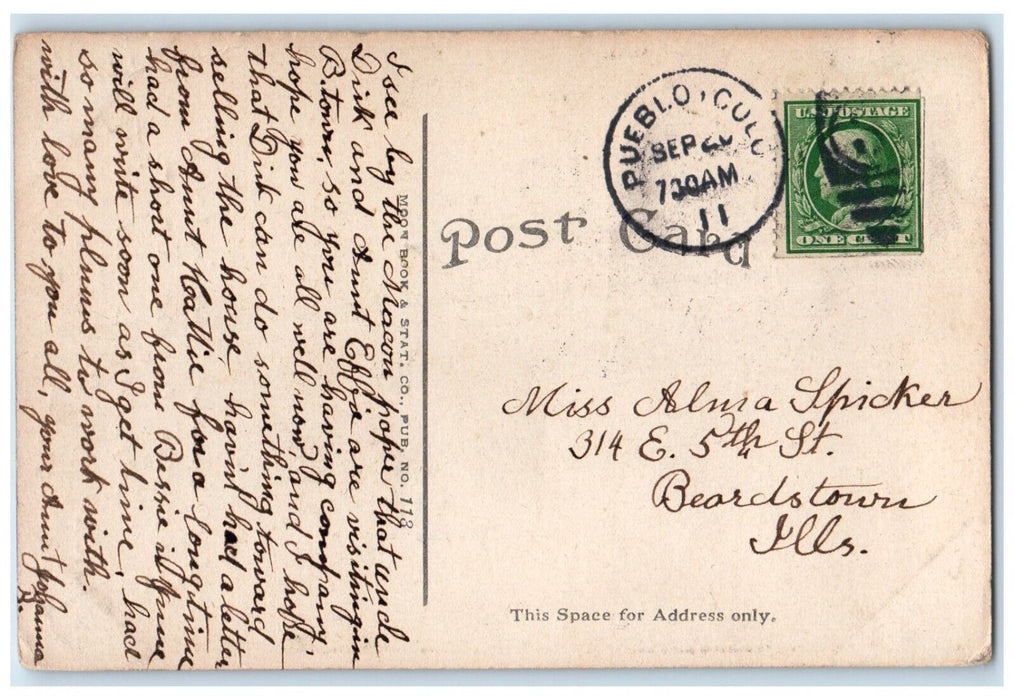 I see by the Macon paper that uncle
Dick and Aunt Effie are visiting in
B.town, so you are having company,
hope you are all well now, and I hope
that Dick can do something toward
selling the house, havint had a letter
from Aunt Hattie for a long time
had a short one from Bessie in June
will write soon as I get time, had
so many plums to work with.
with love to you all, your Aunt Johanna
MOON BOOK & STAT. CO., PUB. NO. 113
Post Card
PUEBLO, COLO
SEP
730AM
11
U.S. POSTAGE
ONE CENT
Miss Alma Spicker
314 E. 5th St.
Beardstown
Ills.
This Space for Address only.